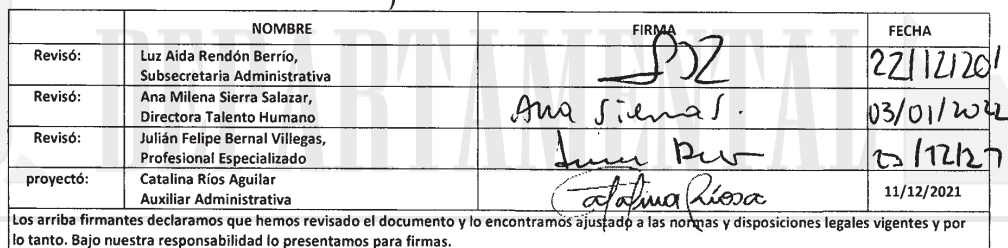 NOMBRE FIRMA FECHA
Revisó: Luz Aida Rendón Berrío,
Subsecretaria Administrativa
22/12/20
Revisó: Ana Milena Sierra Salazar,
Directora Talento Humano
Ana Sierra S. 03/01/2022
Revisó: Julián Felipe Bernal Villegas,
Profesional Especializado
proyectó: Catalina Ríos Aguilar
Auxiliar Administrativa
Catalina Ríos A 11/12/2021
Los arriba firmantes declaramos que hemos revisado el documento y lo encontramos ajustado a las normas y disposiciones legales vigentes y por
lo tanto. Bajo nuestra responsabilidad lo presentamos para firmas.
DEPARTAMENTAL